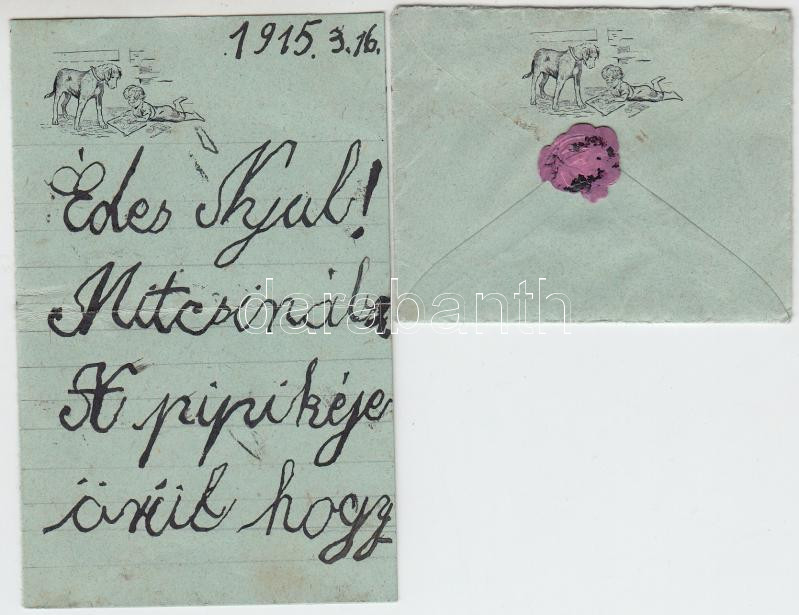 1915. 3. 16.
Édes Nyul!
Mitcsinálsz
A pipikéje
örül hogy
darabanth